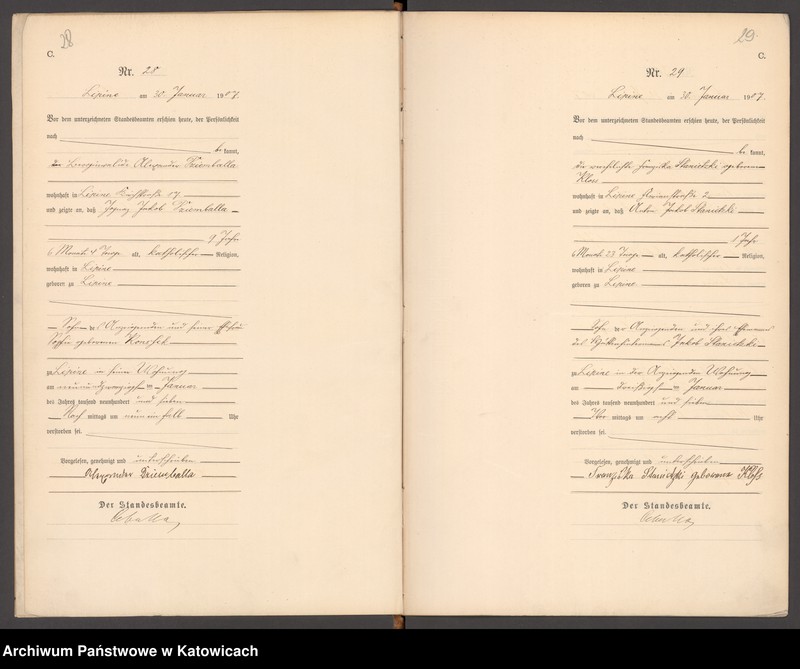 28
C.
Nr. 28
Lipine am 30. Januar 1907.
Vor dem unterzeichneten Standesbeamten erschien heute, der Persönlichkeit
nach
be kannt,
der Berginvalide Alexander Dziemballa
wohnhaft in Lipine 17
und zeigte an, daß Ignaz Jakob Dziemballa
9 Jahre
6 Monate 4 Tage alt, katholischer Religion,
wohnhaft in Lipine
geboren zu Lipine
Sohn des Anzeigenden und seiner Ehefrau
Sofie geborenen
zu Lipine in seiner Wohnung
am neunundzwanzigsten Januar
des Jahres tausend neunhundert und sieben
Nach mittags um neun ein halb Uhr
verstorben sei.
Vorgelesen, genehmigt und unterschrieben
Alexander Dziemballa
Der Standesbeamte.
29
C.
Nr. 29
Lipine am 30. Januar 1907.
Vor dem unterzeichneten Standesbeamten erschien heute, der Persönlichkeit
nach
be kannt,
die verehelichte Franziska Stanitzki geborene
Kloß
wohnhaft in Lipine 2
und zeigte an, daß Anton Jakob Stanitzki
1 Jahr
6 Monate 23 Tage alt, katholischer Religion,
wohnhaft in Lipine
geboren zu Lipine
Sohn der Anzeigenden und ihres Ehemannes
des Jakob Stanitzki
zu Lipine in der Anzeigenden Wohnung
am dreißigsten Januar
des Jahres tausend neunhundert und sieben
Vor mittags um acht Uhr
verstorben sei.
Vorgelesen, genehmigt und unterschrieben
Franziska Stanitzki geborene Kloß
Der Standesbeamte.
Archiwum Państwowe w Katowicach